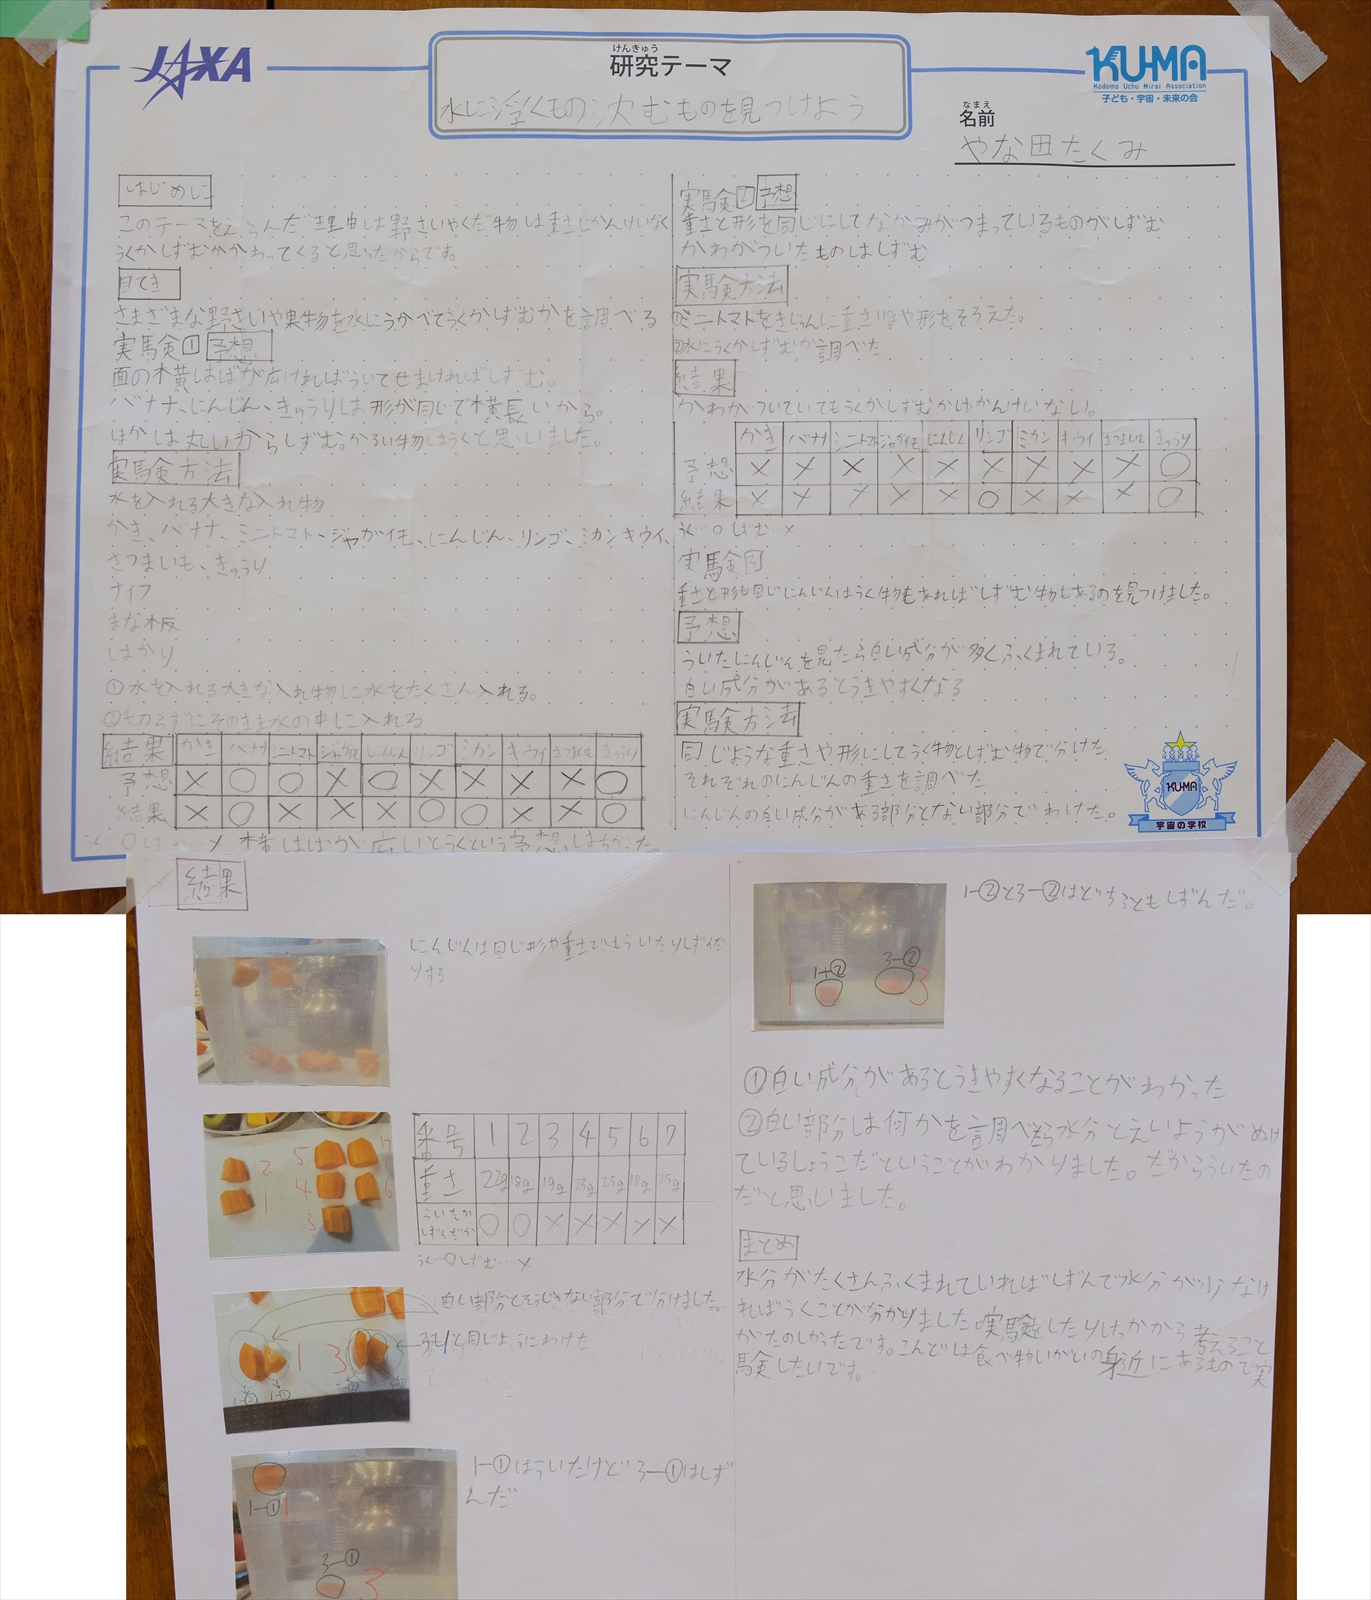 JAXA
けんきゅう
研究テーマ
水に浮くもの沈むものを見つけよう
KU-MA
Kodomo Uchu Mirai Association
子ども・宇宙・未来の会
なまえ
名前
やな田たくみ
はじめに
このテーマをえらんだ理由は野さいやくだ物は重さにかんけいなく
うくかしずむかかわってくると思ったからです。
目てき
さまざまな野さいや果物を水にうかべてうくかしずむかを調べる
実験1 予想
面の横はばが広ければういてせまければしずむ。
バナナ、にんじん、きゅうりは形が同じで横長いから。
ほかは丸いからしずむ。かるい物はうくと思いました。
実験方法
水を入れる大きな入れ物
かき、バナナ、ミニトマト、ジャガイモ、にんじん、リンゴ、ミカン、キウイ、
さつまいも、きゅうり
ナイフ
まな板
はかり
①水を入れる大きな入れ物に水をたくさん入れる。
②もからずにそのまま水の中に入れる
結果 かき バナナ ミニトマト ジャガイモ にんじん リンゴ ミカン キウイ さつまいも きゅうり
予想 × ○ ○ × ○ × × × × ○
結果 × ○ × × × ○ ○ × × ○
横はばが広いとうくという予想はまちがった。
実験2 予想
重さと形を同じにしてなかみがつまっているものがしずむ
かわがついたものはしずむ
実験方法
①ミニトマトをきじゅんに重さや形をそろえた。
②水にうくかしずむか調べた
結果
かわがついていてもうくかしずむかはかんけいない。
かき バナナ ミニトマト ジャガイモ にんじん リンゴ ミカン キウイ さつまいも きゅうり
予想 × × × × × × × × × ○
結果 × × × × × ○ × × × ○
うく…○しずむ…×
実験3
重さと形も同じにんじんはうく物もあればしずむ物もあるのを見つけました。
予想
ういたにんじんを見たら白い成分が多くふくまれている。
白い成分があるとうきやすくなる
実験方法
同じような重さや形にしてうく物としずむ物で分けた
それぞれのにんじんの重さを調べた
にんじんの白い成分がある部分とない部分でわけた。
KU-MA
宇宙の学校
結果
にんじんは同じ形や重さでもういたりしずんだ
りする
2
1
5
4
3
7
6
番号 1 2 3 4 5 6 7
重さ 22g 18g 19g 23g 25g 18g 25g
ういたか しずんだか ○ ○ × × × × ×
うく…○しずむ…×
白い部分とそうじゃない部分で分けました。
3も1と同じようにわけた
1 3
1-①はういたけど3-①はしず
んだ
1-① 1
3-① 3
1-②と3-②はどちらともしずんだ。
1 1-② 3-② 3
①白い成分があるとうきやすくなることがわかった
②白い部分は何かを調べたら水分とえいようがぬけ
ているしょうこだということがわかりました。だからういたの
だと思いました。
まとめ
水分がたくさんふくまれていればしずんで水分が少なけ
ればうくことが分かりました。実験をしたりけっかから考えること
がたのしかったです。こんどは食べ物いがいの身近にあるもので実
験したいです。